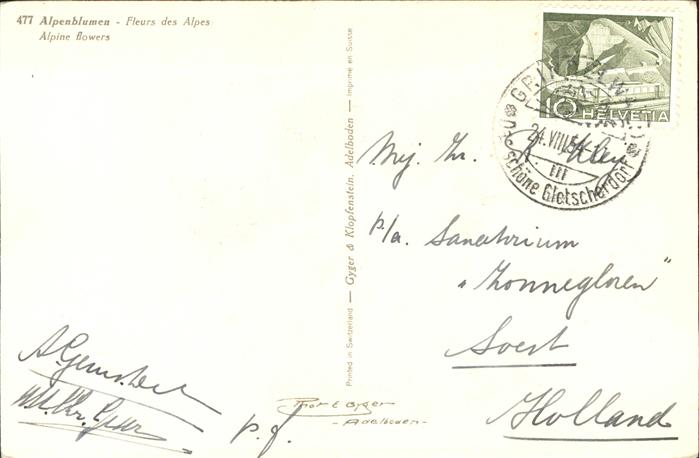 477 Alpenblumen - Fleurs des Alpes
Alpine flowers
Printed in Switzerland — Gyger & Klopfenstein, Adelboden — Imprimé en Suisse
10 HELVETIA
GRINDELWALD
24.VIII.54
III
schöne Gletscherdorf
Mej. Hr. Kley
p/a. Sanatorium
"Zonnegloren"
Soest
Holland
p.f.
Phot E Gyger
- Adelboden -